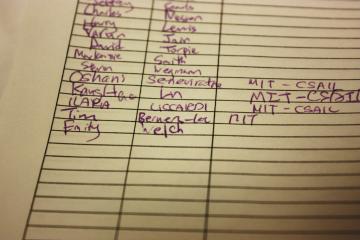 Charles Nesson
Harry Lewis
Jain
David Torpie
Mackenzie Smith
Sean
Oshani Seneviratne MIT - CSAIL
MIT - CSAIL
ILARIA LICCARDI MIT - CSAIL
Tim Berners-Lee MIT
Emily Welch